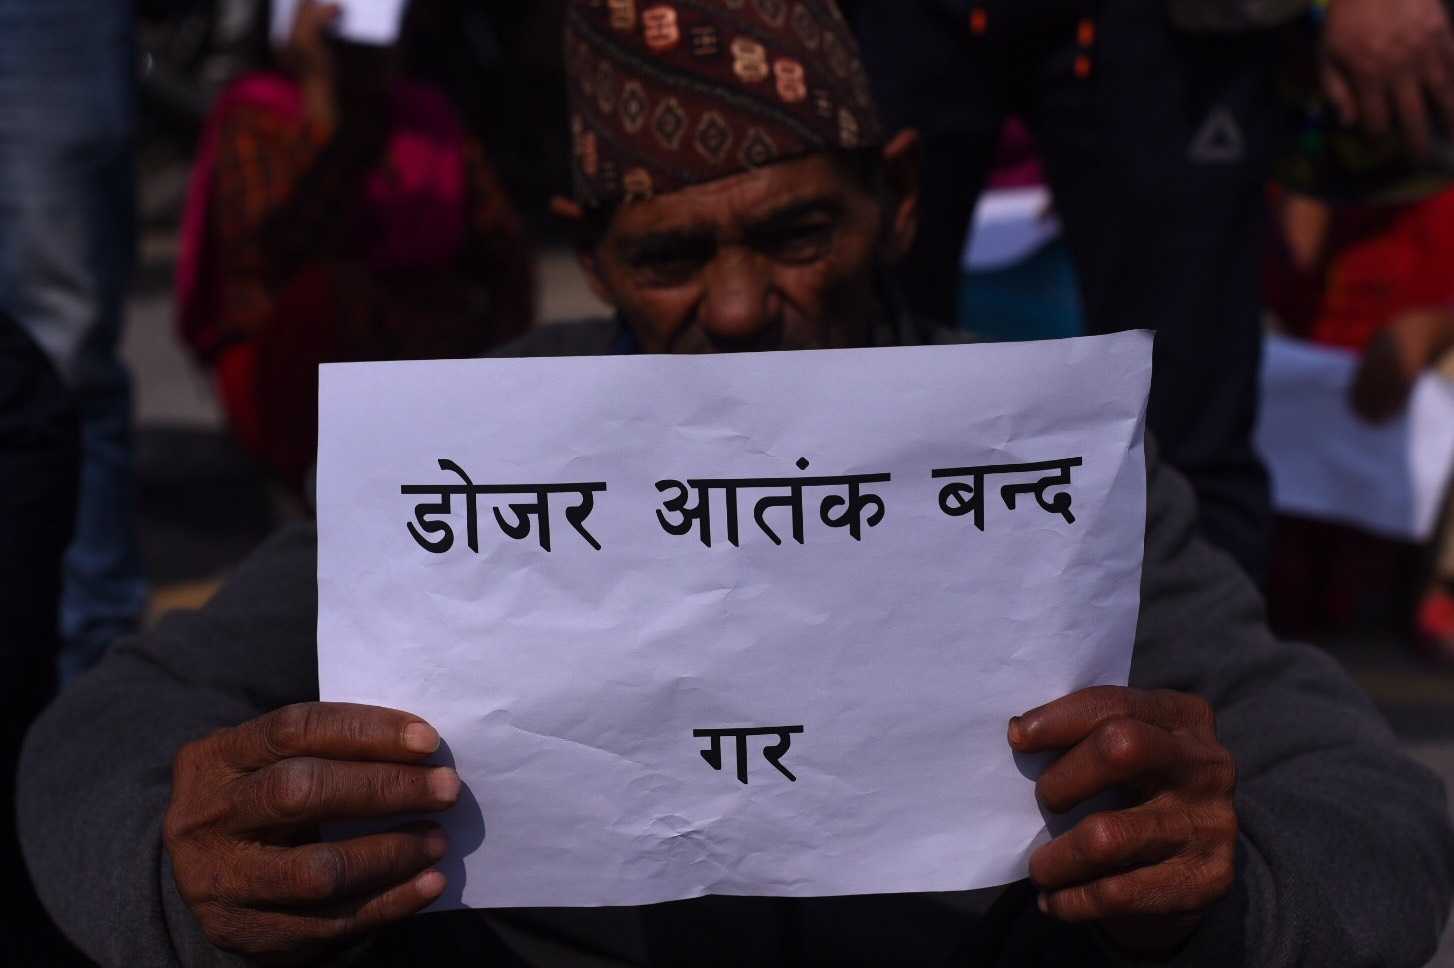 डोजर आतंक बन्द
गर